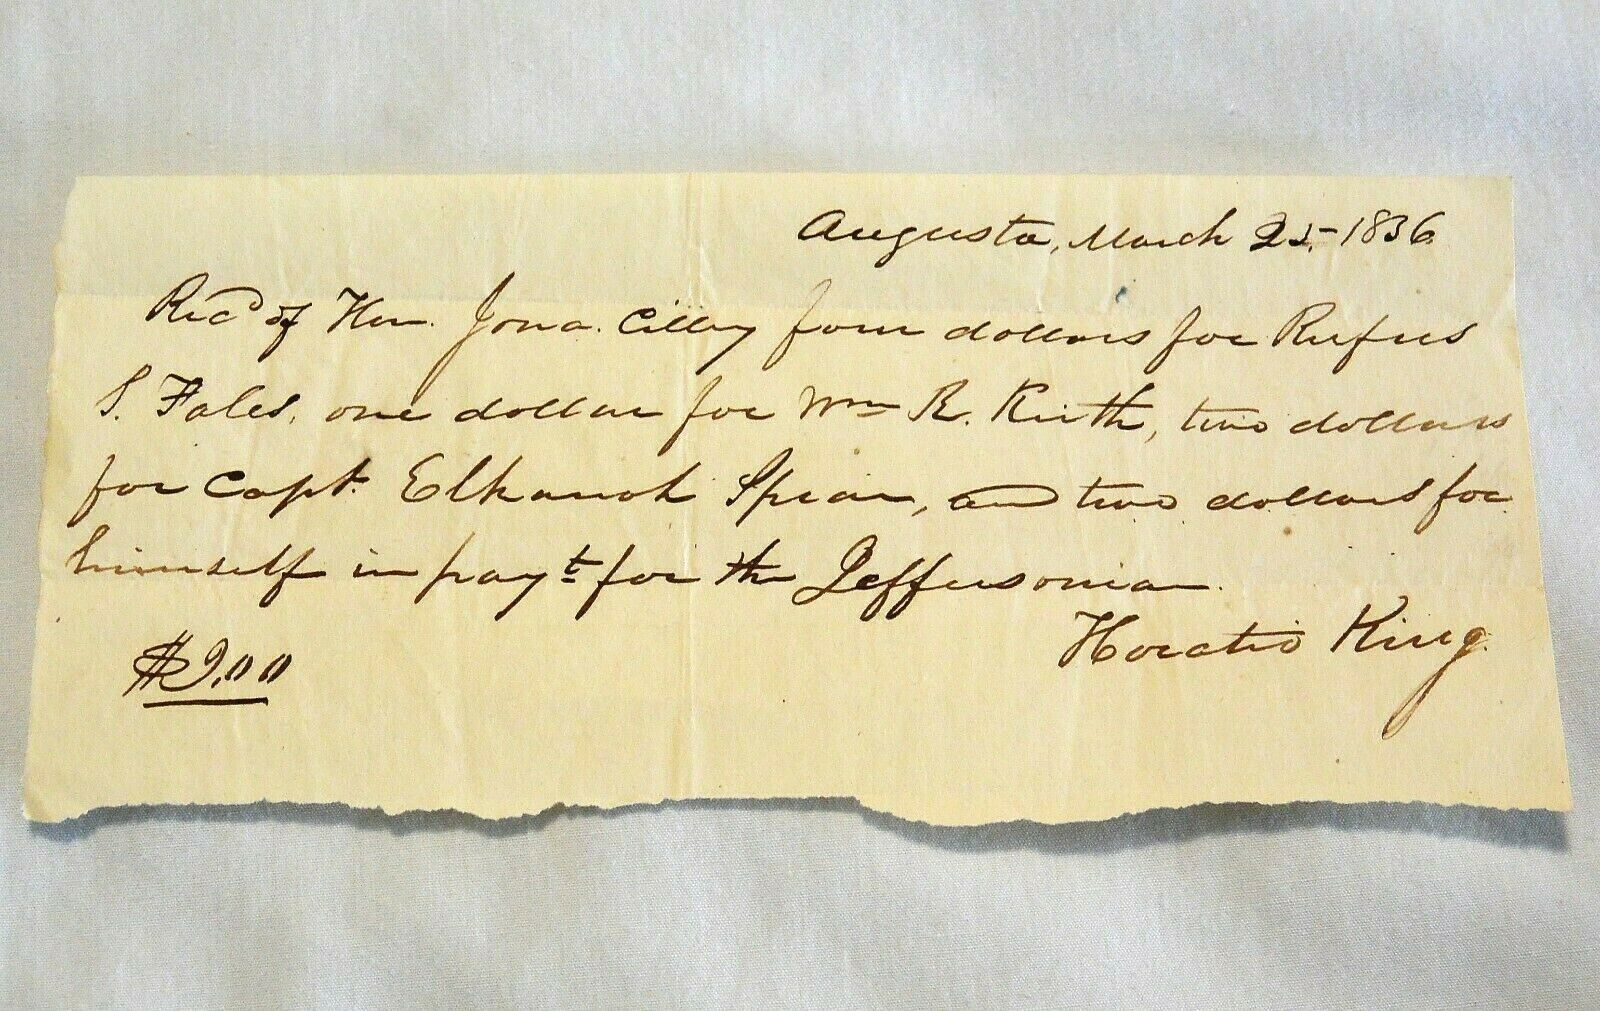 Augusta, March 25, 1836.
Recd of Hon. Jona. Cilley four dollars for Rufus
S. Fales, one dollar for Wm R. Keith, two dollars
for Capt. Elkanah Spear, and two dollars for
himself in payt for the Jeffersonian.
Horatio King.
$9.00